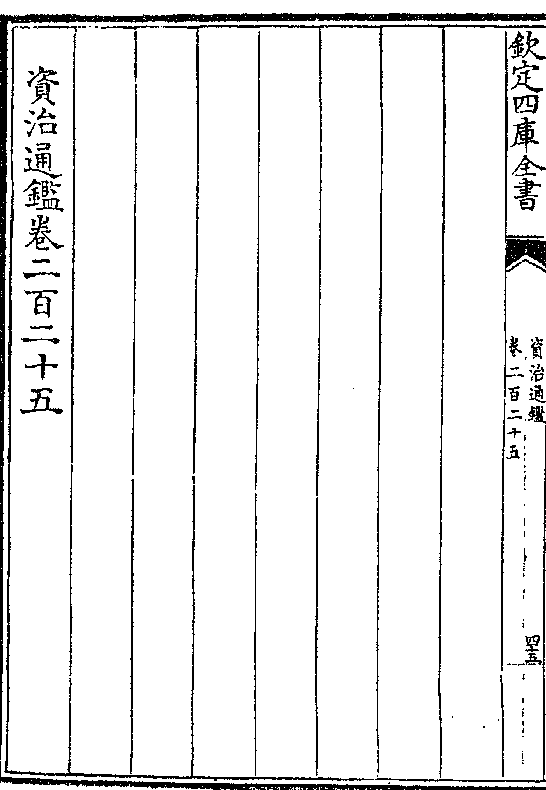 欽定四庫全書
資治通鑑
卷二百二十五
四十五
資治通鑑卷二百二十五